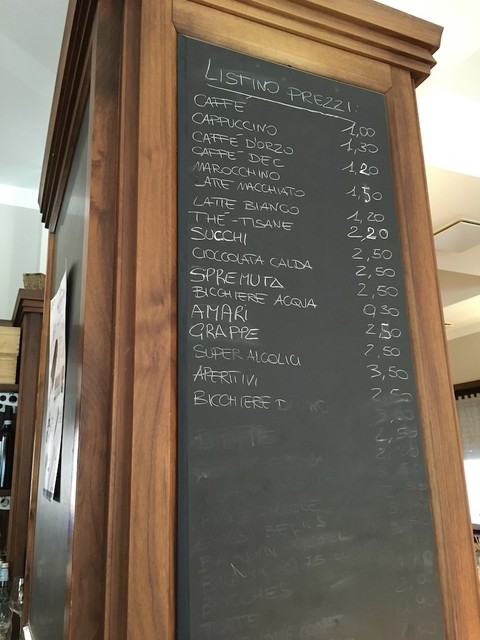 LISTINO PREZZI:
CAFFÈ
CAPPUCCINO
CAFFÈ D'ORZO
CAFFÈ DEC
MAROCCHINO
LATTE MACCHIATO
LATTE BIANCO
THÈ-TISANE
SUCCHI
CIOCCOLATA CALDA
SPREMUTA
BICCHIERE ACQUA
AMARI
GRAPPE
SUPER ALCOLICI
APERITIVI
BICCHIERE
1,00
1,30
1,20
1,50
1,20
2,20
2,50
2,50
2,50
0,30
2,50
2,50
3,50
2,50